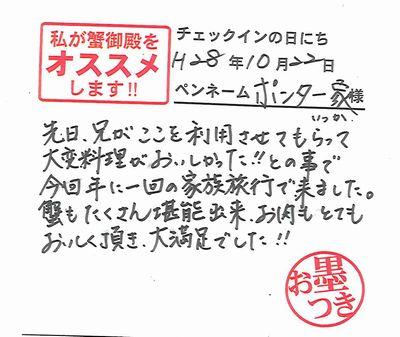 私が蟹御殿を
オススメ
します!!
チェックインの日にち
H28年10月22日
ペンネーム ポンター家様
いっか
先日、兄がここを利用させてもらって
大変料理がおいしかった!!との事で
今回年に一回の家族旅行で来ました。
蟹もたくさん堪能出来、お肉もとても
おいしく頂き、大満足でした!!
お墨つき